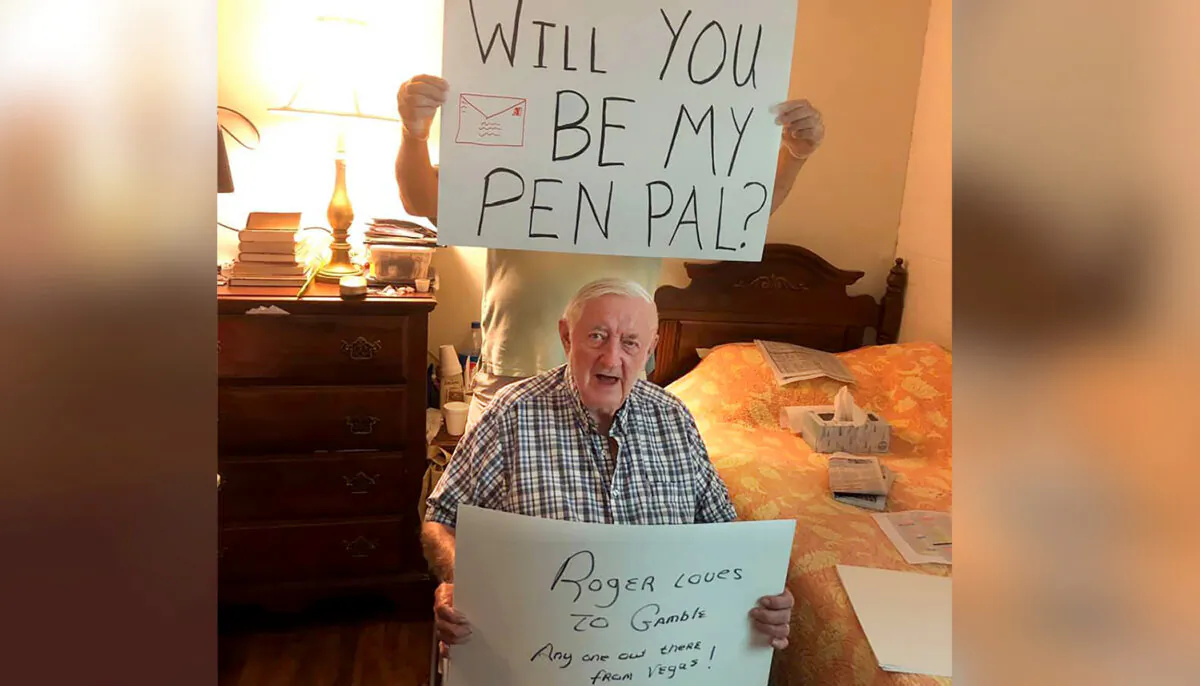 WILL YOU
BE MY
PEN PAL?
ROGER LOVES
TO GAMBLE
Any one out there
from Vegas!